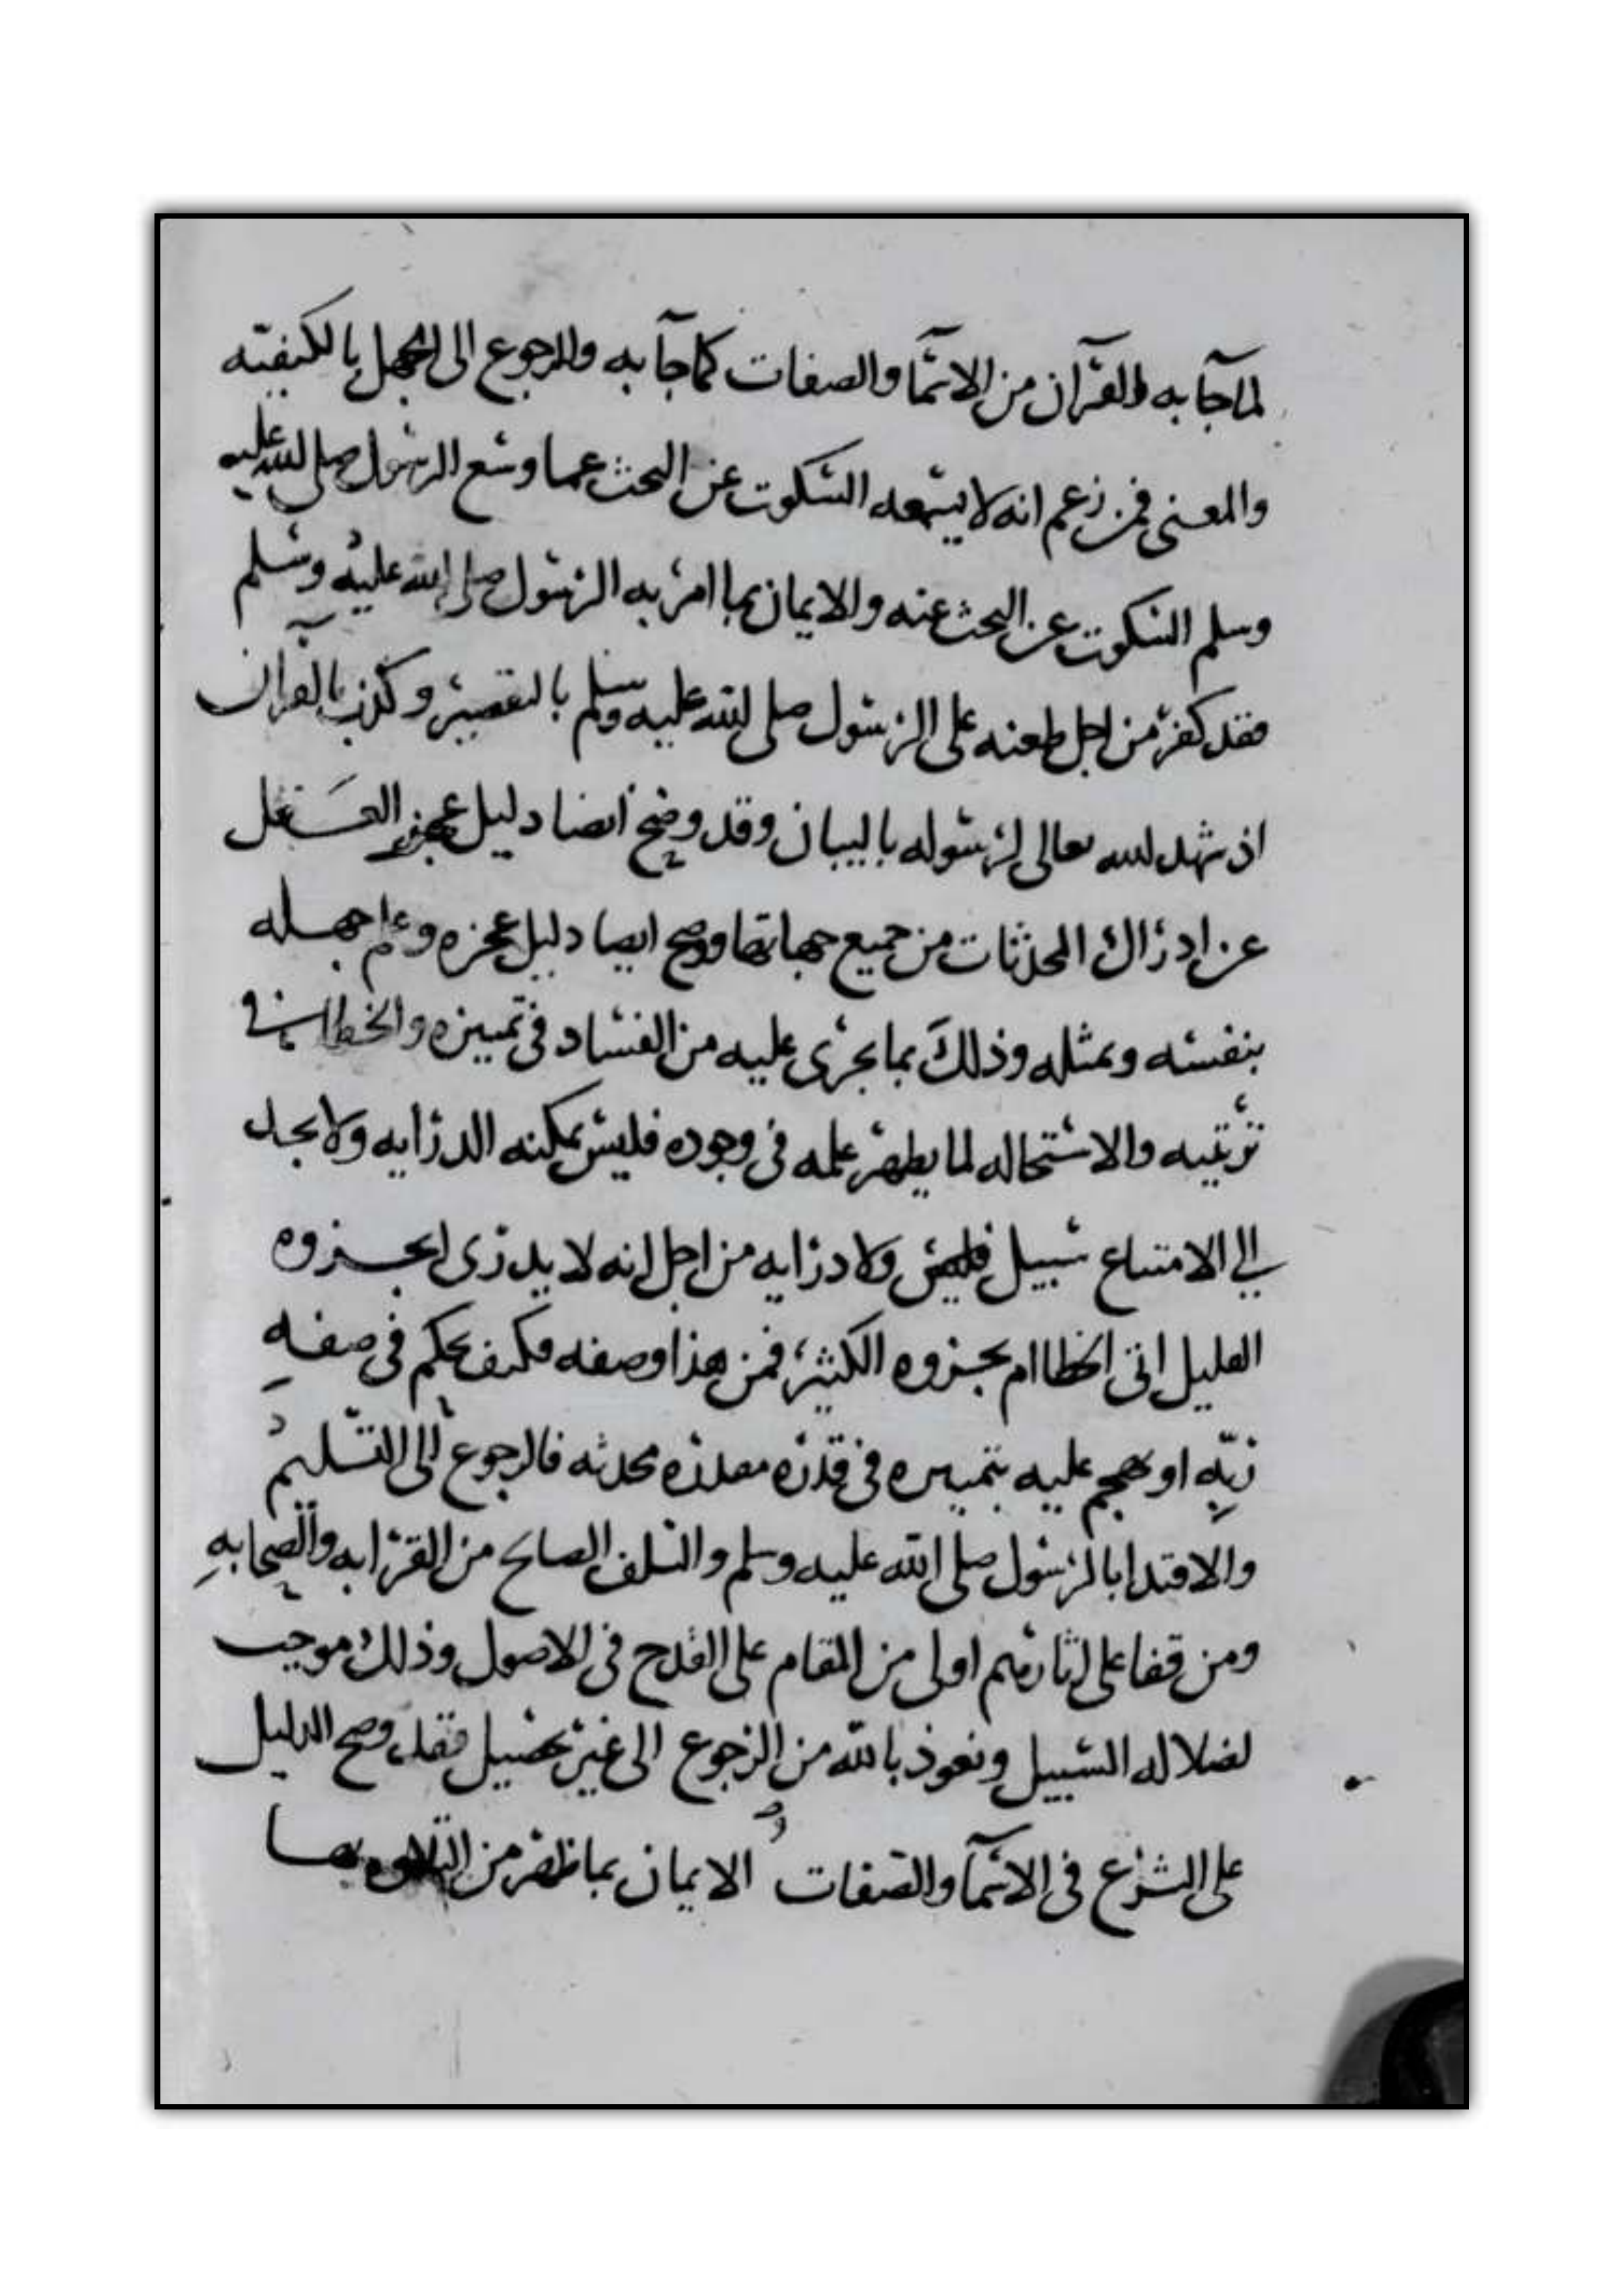 لما جآ به والقرآن من الاسمآ والصفات كما جآ به والرجوع الى الجهل بالكيفية
والمعنى فمن زعم انه لا يسعه السكوت عن البحث عما وسع الرسول صلى الله عليه
وسلم السكوت عن البحث عنه والايمان بما امر به الرسول صلى الله عليه وسلم
فقد كفر من اجل طعنه على الرسول صلى الله عليه وسلم بالتقصير وكذب بالقرآن
اذ شهد الله تعالى لرسوله بالبيان وقد وضح ايضا دليل عجز العقل
عن ادراك المحدثات من جميع جهاتها ووضح ايضا دليل عجزه وعلم جهله
بنفسه وبمثله وذلك بما يجرى عليه من الفساد فى تمييزه والخطا فى
ترتيبه والاستحاله لما يظهر علمه فى وجوده فليس يمكنه الدرايه ولا يجد
الى الامتناع سبيل فليس ولا درايه من اجل انه لا يدرى ابجزوه
القليل اتى الخطا ام بجزوه الكثير فمن هذا وصفه فكيف يحكم فى صفه
ربه او يهجم عليه بتمييزه فى قدره مقدره محدثه فالرجوع الى التسليم
والاقتدا بالرسول صلى الله عليه وسلم والسلف الصالح من القرابه والصحابه
ومن قفا على اثارهم اولى من المقام على القدح فى الاصول وذلك موجب
لضلاله السبيل ونعوذ بالله من الرجوع الى غير تحصيل فقد وضح الدليل
على الشرع فى الاسمآ والصفات الايمان بما ظهر من التلاوه بها